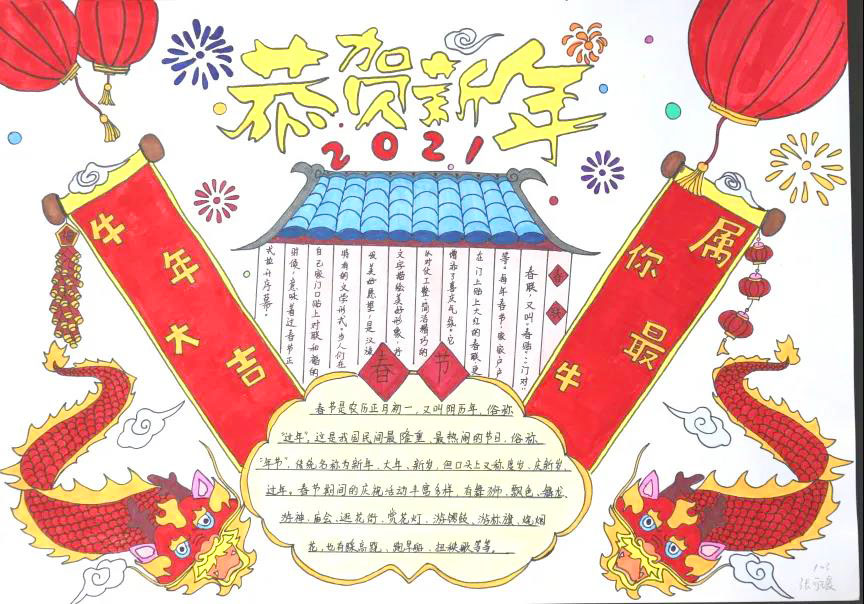 恭贺新年
2021
牛年大吉
属你最牛
春联
春联，又叫"春贴"、"门对"
等。每年春节，家家户户
在门上贴上大红的春联，更
增添了喜庆气氛。它
以对仗工整、简洁精巧的
文字描绘美好形象，抒
发美好愿望，是汉族
特有的文学形式。当人们在
自己家门口贴上对联和福的
时候，意味着过春节正
式拉开序幕。
春节
春节是农历正月初一，又叫阴历年，俗称
"过年"。这是我国民间最隆重、最热闹的节日，俗称
"年节"，传统名称为新年、大年、新岁，但口头上又称度岁、庆新岁、
过年。春节期间的庆祝活动丰富多样，有舞狮、飘色、舞龙、
游神、庙会、逛花街、赏花灯、游锣鼓、游标旗、烧烟
花，也有踩高跷、跑旱船、扭秧歌等等。